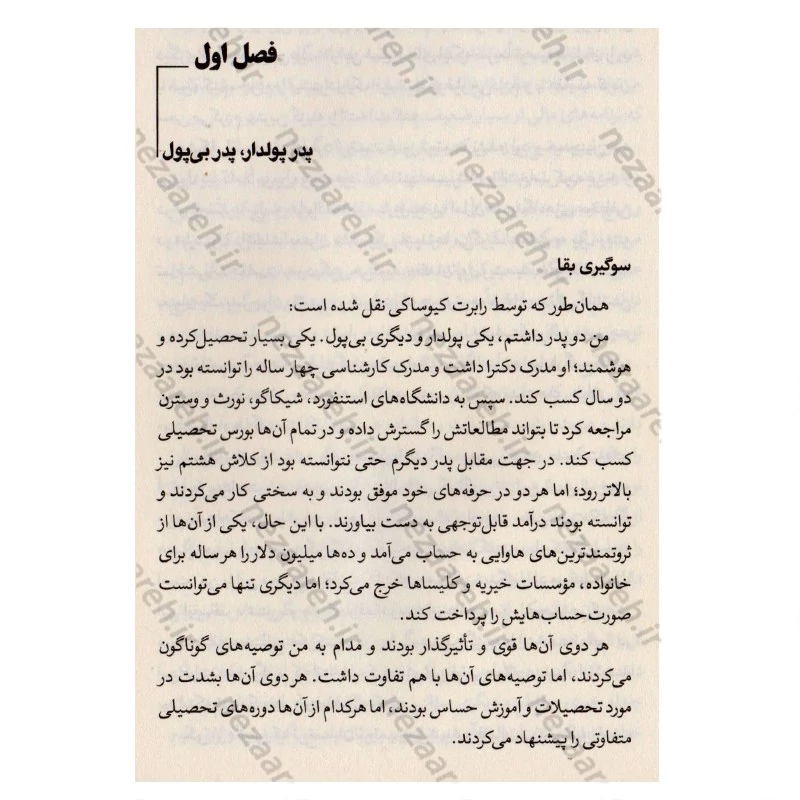 فصل اول
پدر پولدار، پدر بی‌پول
سوگیری بقا
همان‌طور که توسط رابرت کیوساکی نقل شده است:
من دو پدر داشتم، یکی پولدار و دیگری بی‌پول. یکی بسیار تحصیل‌کرده و
هوشمند؛ او مدرک دکترا داشت و مدرک کارشناسی چهار ساله را توانسته بود در
دو سال کسب کند. سپس به دانشگاه‌های استنفورد، شیکاگو، نورث و وسترن
مراجعه کرد تا بتواند مطالعاتش را گسترش داده و در تمام آن‌ها بورس تحصیلی
کسب کند. در جهت مقابل پدر دیگرم حتی نتوانسته بود از کلاش هشتم نیز
بالاتر رود؛ اما هر دو در حرفه‌های خود موفق بودند و به سختی کار می‌کردند و
توانسته بودند درآمد قابل‌توجهی به دست بیاورند. با این حال، یکی از آن‌ها از
ثروتمندترین‌های هاوایی به حساب می‌آمد و ده‌ها میلیون دلار را هر ساله برای
خانواده، مؤسسات خیریه و کلیساها خرج می‌کرد؛ اما دیگری تنها می‌توانست
صورت‌حساب‌هایش را پرداخت کند.
هر دوی آن‌ها قوی و تأثیرگذار بودند و مدام به من توصیه‌های گوناگون
می‌کردند، اما توصیه‌های آن‌ها با هم تفاوت داشت. هر دوی آن‌ها بشدت در
مورد تحصیلات و آموزش حساس بودند، اما هرکدام از آن‌ها دوره‌های تحصیلی
متفاوتی را پیشنهاد می‌کردند.
nezaareh.ir